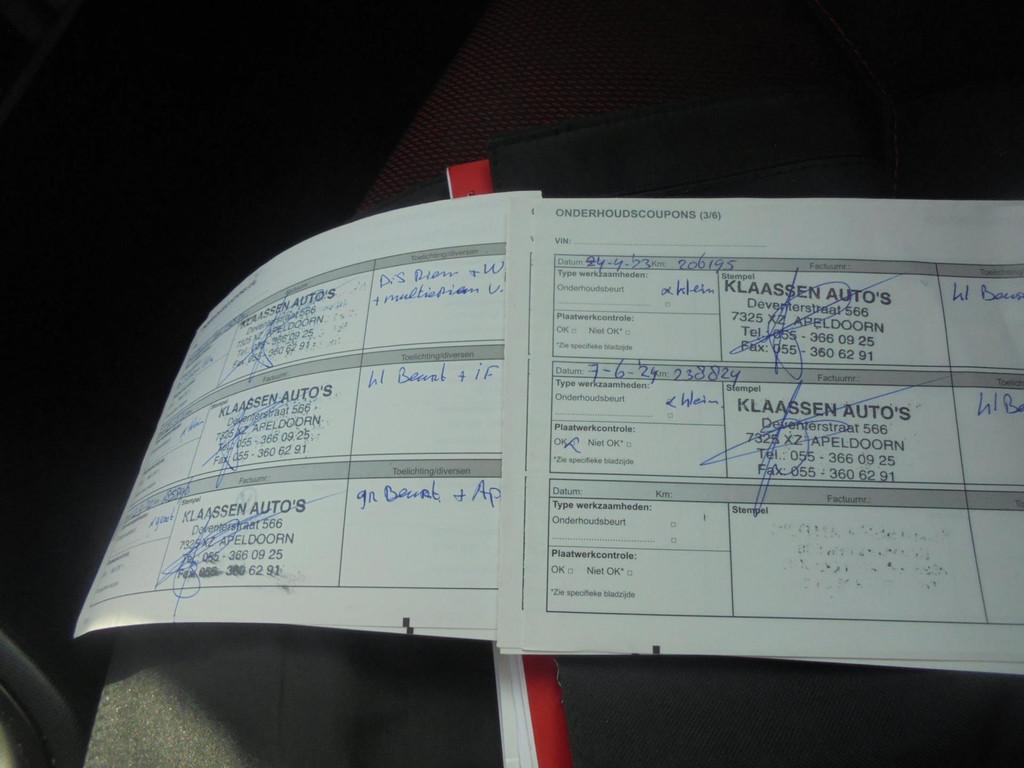 Toelichting/diversen
DiS Riem + W.
+ multiriem v.
KLAASSEN AUTO'S
Deventerstraat 566
7325 XZ APELDOORN
Tel.: 055 - 366 09 25
Fax: 055 - 360 62 91
Toelichting/diversen
Factuurnr.:
kl Beurt + iF
KLAASSEN AUTO'S
Deventerstraat 566
7325 XZ APELDOORN
Tel.: 055 - 366 09 25
Fax: 055 - 360 62 91
Toelichting/diversen
Factuurnr.:
Stempel
gr Beurt + Ap
KLAASSEN AUTO'S
Deventerstraat 566
7325 XZ APELDOORN
Tel.: 055 - 366 09 25
Fax: 055 - 360 62 91
ONDERHOUDSCOUPONS (3/6)
VIN:
Datum: 24-4-'23 Km: 206195 Factuurnr.:
Type werkzaamheden:
Onderhoudsbeurt klein
Plaatwerkcontrole:
OK Niet OK*
*Zie specifieke bladzijde
Stempel
KLAASSEN AUTO'S
Deventerstraat 566
7325 XZ APELDOORN
Tel.: 055 - 366 09 25
Fax: 055 - 360 62 91
kl Beu
Datum: 7-6-'24 Km: 238824 Factuurnr.:
Type werkzaamheden:
Onderhoudsbeurt klein
Plaatwerkcontrole:
OK Niet OK*
*Zie specifieke bladzijde
Stempel
KLAASSEN AUTO'S
Deventerstraat 566
7325 XZ APELDOORN
Tel.: 055 - 366 09 25
Fax: 055 - 360 62 91
kl Be
Datum: Km: Factuurnr.:
Type werkzaamheden:
Onderhoudsbeurt
Plaatwerkcontrole:
OK Niet OK*
*Zie specifieke bladzijde
Stempel